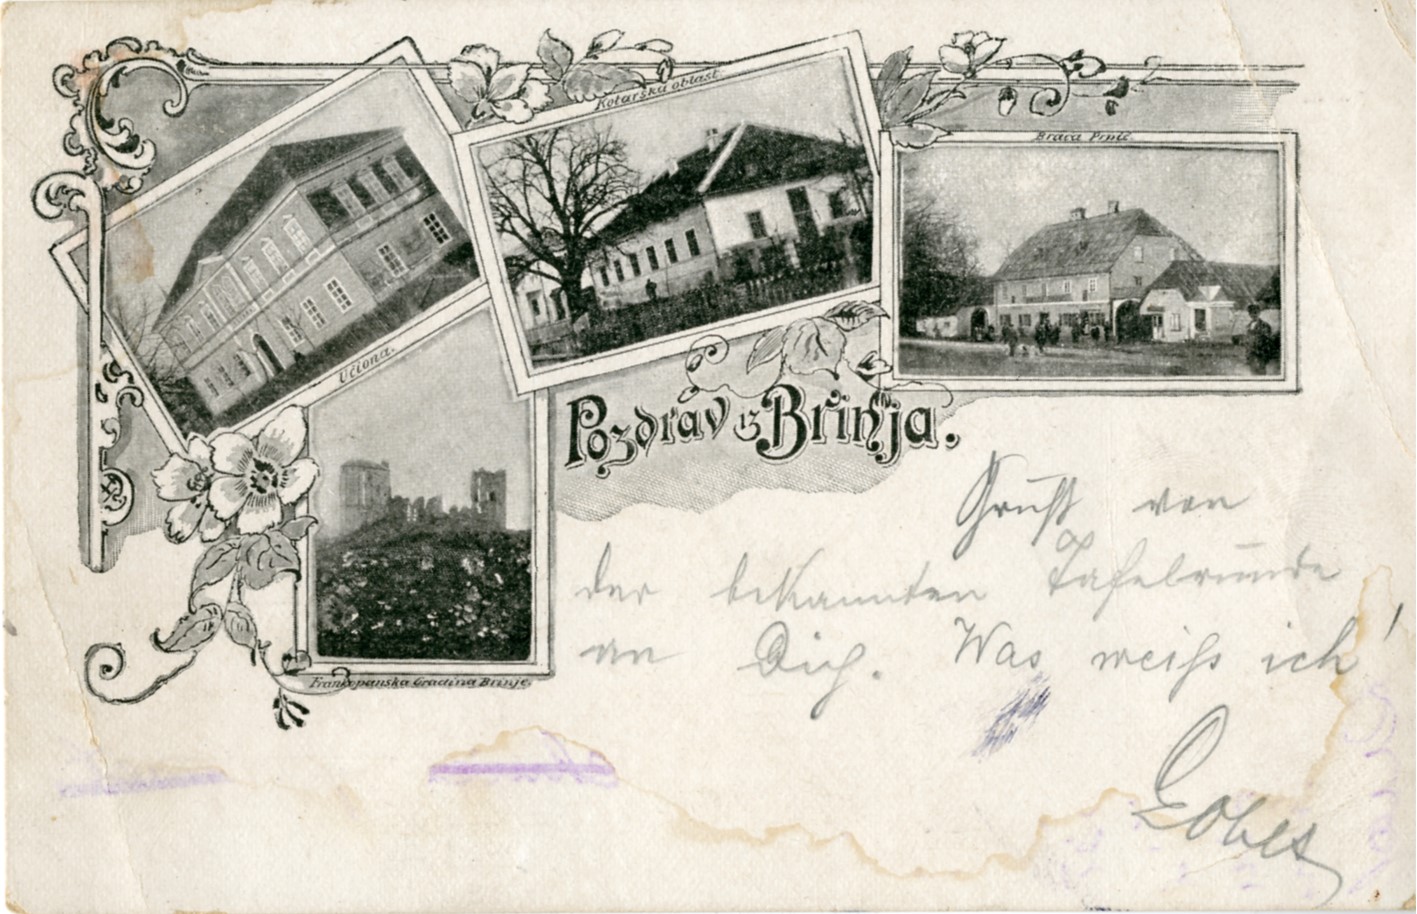 Kotarska oblast.
Braća Prpić.
Učiona.
Pozdrav iz Brinja.
Frankopanska Gradina Brinje.
Gruß von
der bekannten Tafelrunde
an Dich. Was weiß ich!